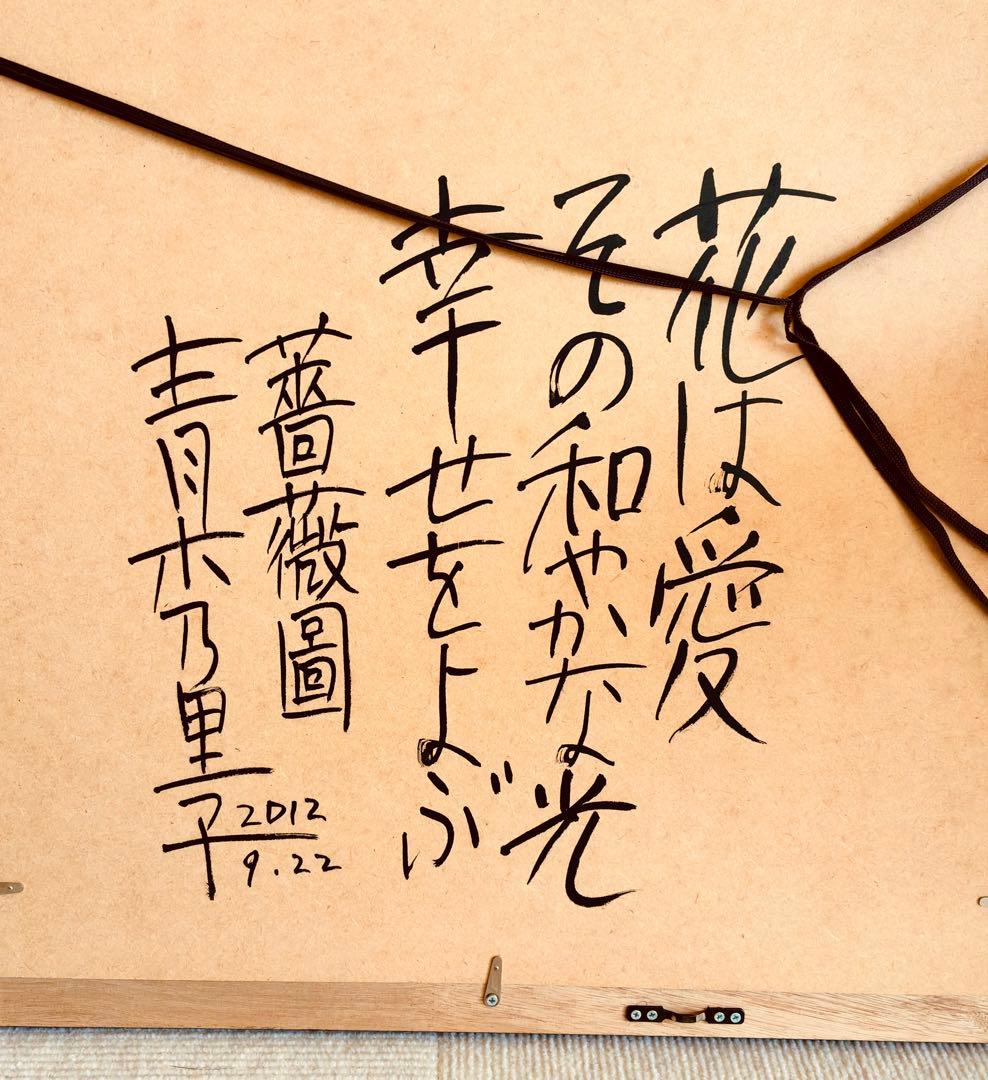 花は愛
その和やかな光
幸せをよぶ
薔薇圖
青木乃里子
2012
9.22